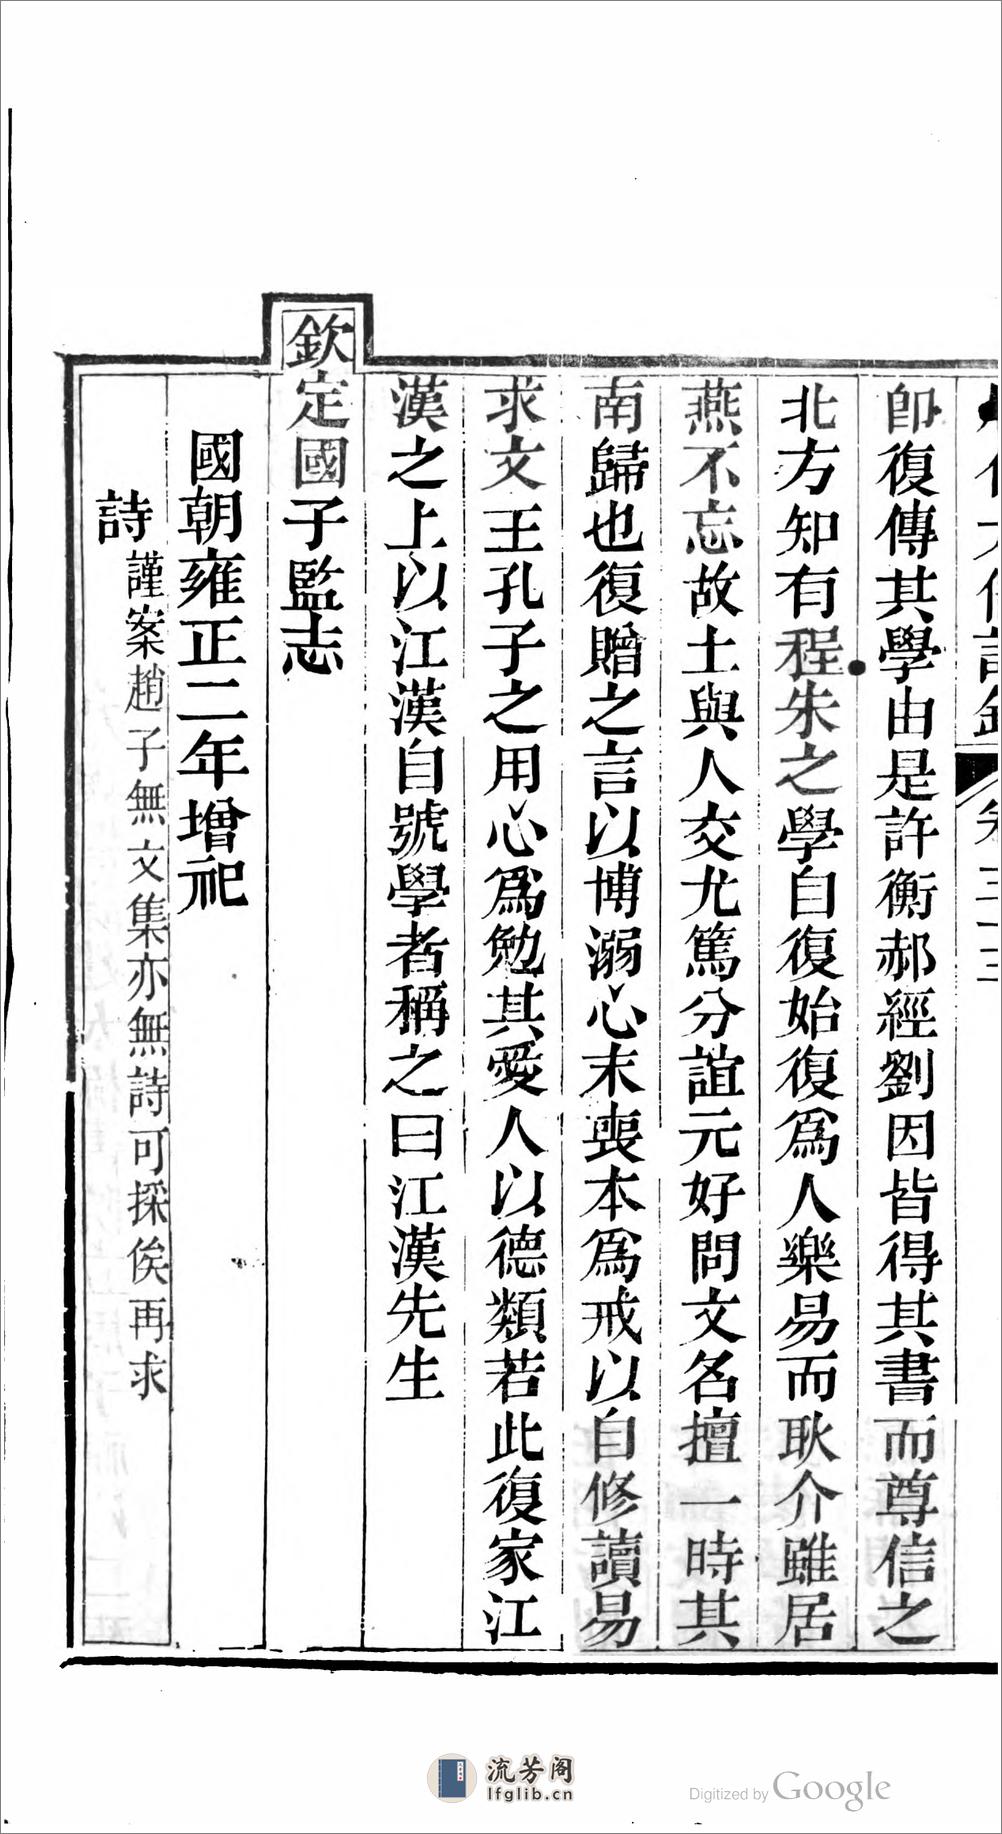 卽復傳其學由是許衡郝經劉因皆得其書而尊信之
北方知有程朱之學自復始復爲人樂易而耿介雖居
燕不忘故土與人交尤篤分誼元好問文名擅一時其
南歸也復贈之言以博溺心末喪本爲戒以自修讀易
求文王孔子之用心爲勉其愛人以德類若此復家江
漢之上以江漢自號學者稱之曰江漢先生
欽定國子監志
國朝雍正二年增祀
詩謹案趙子無文集亦無詩可採俟再求
流芳阁
lfglib.cn
Digitized by Google